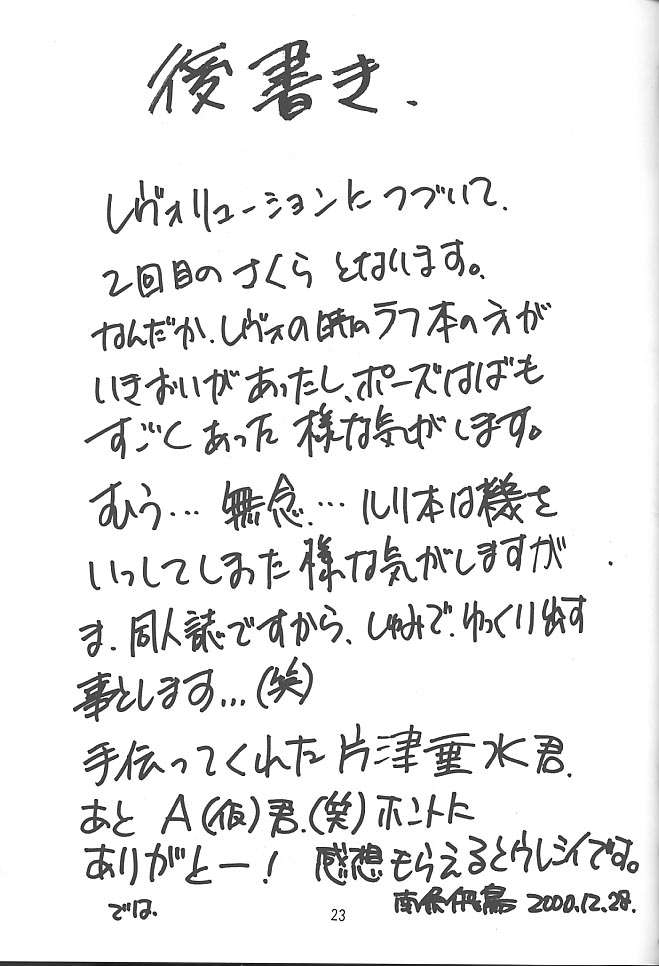 後書き.
レヴォリューションにつづいて.
2回目のさくらとなります。
なんだか.レヴォの時のラフ本の方が
いきおいがあったし、ポーズはばも
すごくあった様な気がします。
むう…無念.…ルリ本は機を
いっしてしまった様な気がしますが
ま.同人誌ですから、しゅみで.ゆっくり出す
事とします…(笑)
手伝ってくれた片津垂水君.
あとA(仮)君.(笑)ホントに
ありがとー!感想もらえるとウレシイです。
では.
2000.12.28.
23